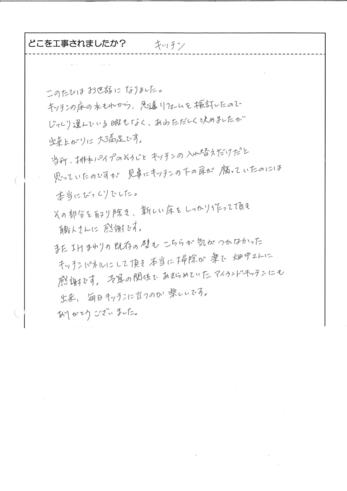 どこを工事されましたか？ キッチン
このたびは お世話に なりました。
キッチンの床の水もれから、急遽リフォームを検討したので
じっくり選んでいる暇もなく、あわただしく決めましたが
出来上がりに 大満足です。
当初、排水パイプのそうじと キッチンの 入れ替えだけだと
思っていたのですが 見事にキッチンの下の床が 腐っていたのには
本当に びっくりでした。
その部分を取り除き、新しい床をしっかり作って頂き
職人さんに 感謝です。
また まわりの既存の壁も こちらが 気が つかなかった
キッチンパネルにして頂き 本当に掃除が 楽で 畑中さんに
感謝です。 の関係で あきらめていた アイランドキッチンにも
出来、毎日キッチンに立つのが 楽しいです。
ありがとうございました。